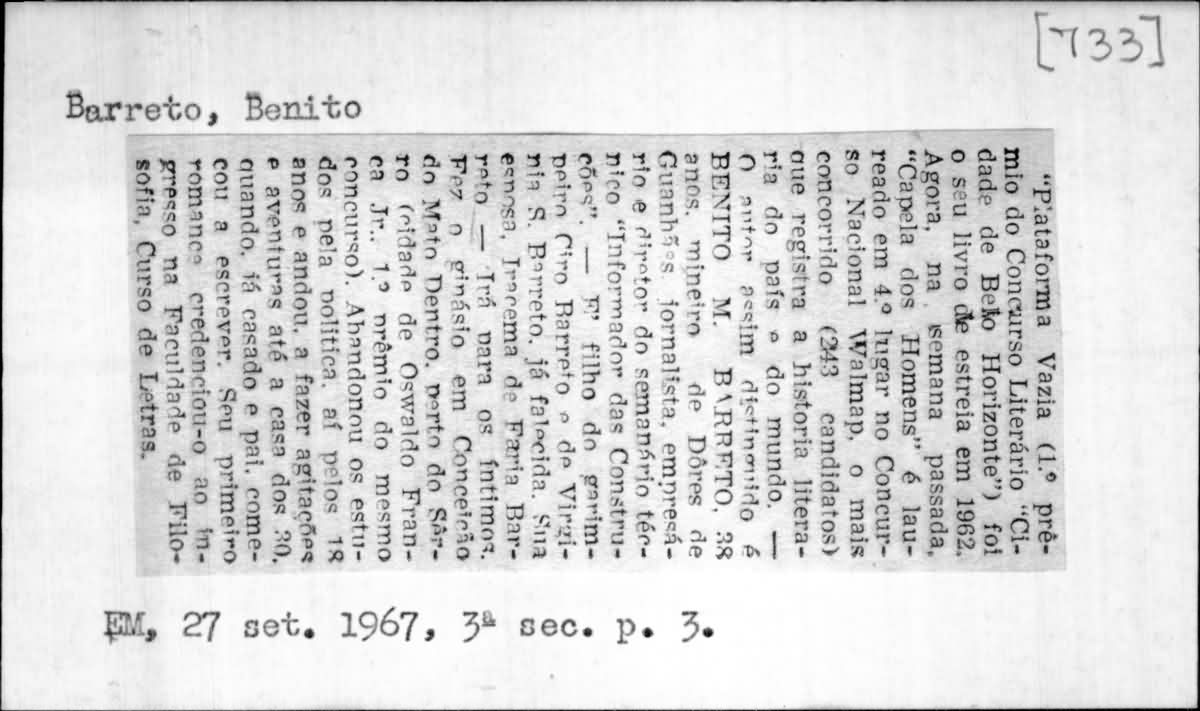 [733]
Barreto, Benito
"Plataforma Vazia (1.º prê-
mio do Concurso Literário "Ci-
dade de Belo Horizonte") foi
o seu livro de estreia em 1962.
Agora, na semana passada,
"Capela dos Homens" é lau-
reado em 4.º lugar no Concur-
so Nacional Walmap, o mais
concorrido (243 candidatos)
que registra a historia litera-
ria do país e do mundo. —
O autor assim distinguido é
BENITO M. BARRETO, 38
anos, mineiro de Dôres de
Guanhães, jornalista, empresá-
rio e diretor do semanário téc-
nico "Informador das Constru-
ções". — E' filho do garim-
peiro Ciro Barreto e de Virgi-
nia S. Barreto, já falecida. Sua
esposa, Iracema de Faria Bar-
reto — Irá para os íntimos.
Fez o ginásio em Conceição
do Mato Dentro, perto do Sêr-
ro (cidade de Oswaldo Fran-
ca Jr.: 1.º prêmio do mesmo
concurso). Abandonou os estu-
dos pela politica, aí pelos 18
anos e andou a fazer agitações
e aventuras até a casa dos 30,
quando, já casado e pai, come-
cou a escrever. Seu primeiro
romance credenciou-o ao in-
gresso na Faculdade de Filo-
sofia, Curso de Letras.
EM, 27 set. 1967, 3ª sec. p. 3.